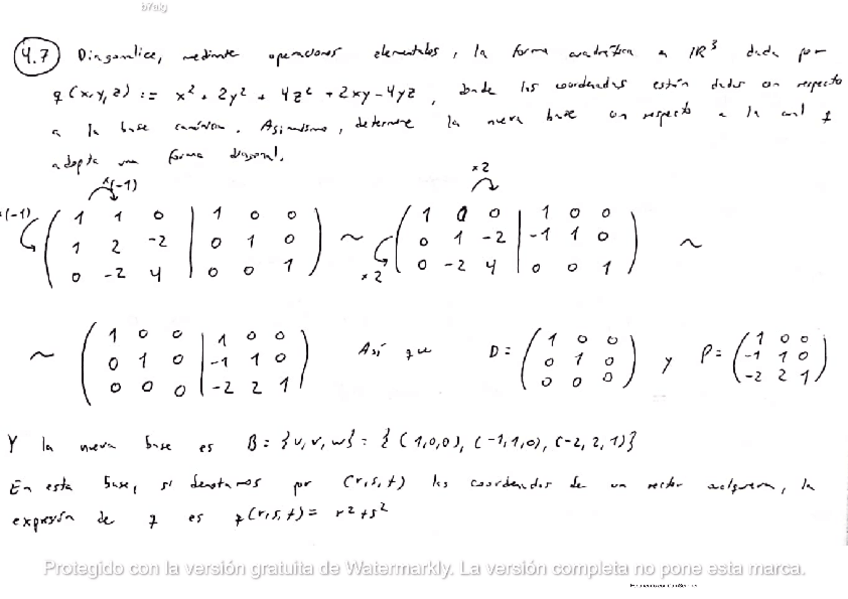 4.7 Diagonalice, mediante operaciones elementales, la forma cuadrática en IR³ dada por
q(x,y,z) := x² + 2y² + 4z² + 2xy - 4yz, donde las coordenadas están dadas con respecto
a la base canónica. Asimismo, determine la nueva base con respecto a la cual q
adopta una forma diagonal.
x(-1) x2
x(-1) ( 1 1 0 | 1 0 0 ) ~ ( 1 0 0 | 1 0 0 ) ~
( 1 2 -2 | 0 1 0 ) ( 0 1 -2 | -1 1 0 )
( 0 -2 4 | 0 0 1 ) x2 ( 0 -2 4 | 0 0 1 )
~ ( 1 0 0 | 1 0 0 ) Así que D = ( 1 0 0 ) y P = ( 1 0 0 )
( 0 1 0 | -1 1 0 ) ( 0 1 0 ) ( -1 1 0 )
( 0 0 0 | -2 2 1 ) ( 0 0 0 ) ( -2 2 1 )
Y la nueva base es B = {u, v, w} = { (1,0,0), (-1,1,0), (-2,2,1)}
En esta base, si denotamos por (r,s,t) las coordenadas de un vector cualquiera, la
expresión de q es q(r,s,t) = r² + s²
Protegido con la versión gratuita de Watermarkly. La versión completa no pone esta marca.